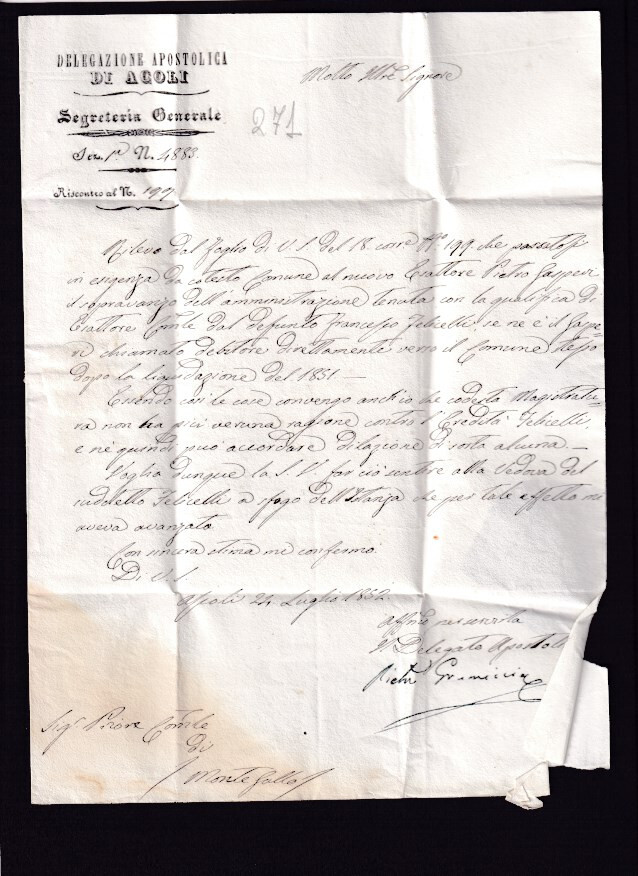 DELEGAZIONE APOSTOLICA
DI ASCOLI
Segreteria Generale
Sez. 1ª N. 4883.
Riscontro al N. 199
271
Molto Illre Signore
Rilevo dal foglio di V. S. del 18. corre Nº 199. che passatosi
in esigenza da cotesto Comune al nuovo Esattore Pietro Gasperi
il sopravanzo dell'amministrazione tenuta con la qualifica di
Esattore Comle dal defunto Francesco Felicelli, se ne è il Gaspe-
ri chiamato debitore direttamente verso il Comune stesso
dopo la liquidazione del 1851 —
Essendo così le cose convengo anch'io che codesta Magistratu-
ra non ha più veruna ragione contro l'Eredità Felicelli,
e nè quindi può accordare dilazione di sorta alcuna. —
Voglia dunque la S. V. far ciò sentire alla Vedova del
sudetto Felicelli a sfogo dell'Istanza che per tale effetto mi
aveva avanzato.
Con sincera stima mi confermo.
Di V. S.
Ascoli 24 Luglio 1852.
Affmo per servirla
Il Delegato Apostol
Sigr Priore Comle
di
Montegallo